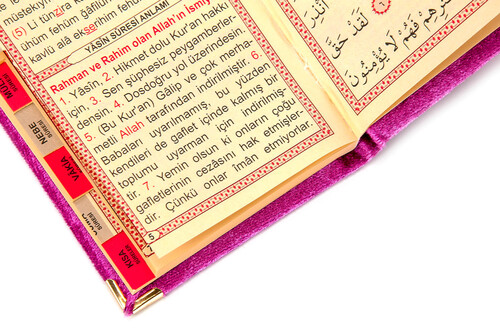 (5) Li tünzir
ühüm fehüm ğafilûn
kavlü alâ ekserihim fehüm
YÂSİN SÛRESİ ANLAMI
Rahman ve Rahim olan Allah'ın İsmiyle
1. Yâsin. 2. Hikmet dolu Kur'an hakkı
için, 3. Sen şüphesiz peygamberler-
densin. 4. Dosdoğru yol üzerindesin.
5. (Bu Kur'an) Gâlip ve çok merha-
metli Allah tarafından indirilmiştir. 6.
Babaları uyarılmamış, bu yüzden
kendileri de gaflet içinde kalmış bir
toplumu uyarman için indirilmiş-
tir. 7. Yemin olsun ki onların çoğu
gafletlerinin cezasını hak etmişler-
dir. Çünkü onlar îman etmiyorlar.
5
لَقَدْ حَقَّ
فَهُمْ لَا يُؤْمِنُونَ
NEBE
SÛRESİ
VAKIA
SÛRESİ
KISA
SÛRELER